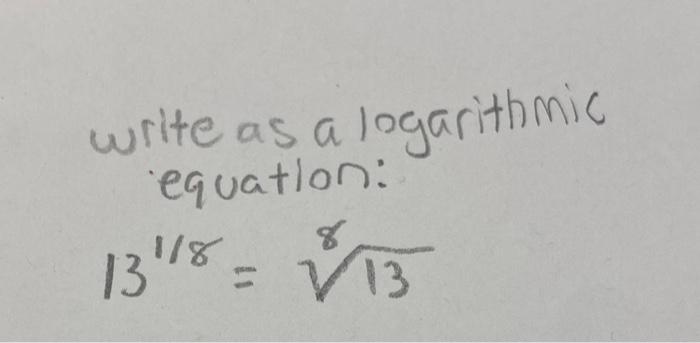 write as a logarithmic
equation:
13^{1/8} = \sqrt[8]{13}